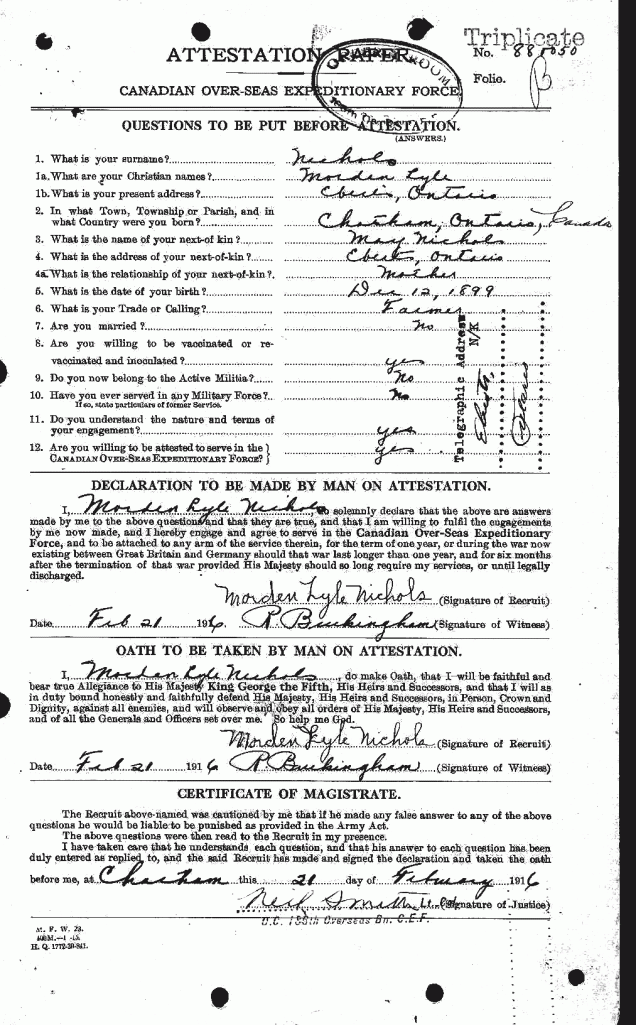 Triplicate
ATTESTATION PAPER.
No. 880050
Folio.
CANADIAN OVER-SEAS EXPEDITIONARY FORCE
QUESTIONS TO BE PUT BEFORE ATTESTATION.
(ANSWERS.)
1. What is your surname? Nichols
1a. What are your Christian names? Morden Lyle
1b. What is your present address? Eberts, Ontario
2. In what Town, Township or Parish, and in
what Country were you born? Chatham, Ontario, Canada
3. What is the name of your next-of kin? May Nichols
4. What is the address of your next-of-kin? Eberts, Ontario
4a. What is the relationship of your next-of-kin? Mother
5. What is the date of your birth? Dec 12, 1899
6. What is your Trade or Calling? Farmer
7. Are you married? No
8. Are you willing to be vaccinated or re-
vaccinated and inoculated? yes
9. Do you now belong to the Active Militia? No
10. Have you ever served in any Military Force? No
If so, state particulars of former Service.
11. Do you understand the nature and terms of
your engagement? yes
12. Are you willing to be attested to serve in the
CANADIAN OVER-SEAS EXPEDITIONARY FORCE? yes
Telegraphic Address
N/K
Eberts,
Ontario
DECLARATION TO BE MADE BY MAN ON ATTESTATION.
I, Morden Lyle Nichols, do solemnly declare that the above are answers
made by me to the above questions and that they are true, and that I am willing to fulfil the engagements
by me now made, and I hereby engage and agree to serve in the Canadian Over-Seas Expeditionary
Force, and to be attached to any arm of the service therein, for the term of one year, or during the war now
existing between Great Britain and Germany should that war last longer than one year, and for six months
after the termination of that war provided His Majesty should so long require my services, or until legally
discharged.
Morden Lyle Nichols (Signature of Recruit)
Date Feb 21 1916. R. Buckingham (Signature of Witness)
OATH TO BE TAKEN BY MAN ON ATTESTATION.
I, Morden Lyle Nichols, do make Oath, that I will be faithful and
bear true Allegiance to His Majesty King George the Fifth, His Heirs and Successors, and that I will as
in duty bound honestly and faithfully defend His Majesty, His Heirs and Successors, in Person, Crown and
Dignity, against all enemies, and will observe and obey all orders of His Majesty, His Heirs and Successors,
and of all the Generals and Officers set over me. So help me God.
Morden Lyle Nichols (Signature of Recruit)
Date Feb 21 1916 R. Buckingham (Signature of Witness)
CERTIFICATE OF MAGISTRATE.
The Recruit above-named was cautioned by me that if he made any false answer to any of the above
questions he would be liable to be punished as provided in the Army Act.
The above questions were then read to the Recruit in my presence.
I have taken care that he understands each question, and that his answer to each question has been
duly entered as replied to, and the said Recruit has made and signed the declaration and taken the oath
before me, at Chatham this 21 day of February 1916
Neil Smith Lt. Col (Signature of Justice)
O.C. 186th Overseas Bn. C.E.F.
M. F. W. 23.
H. Q. 1772-39-841.